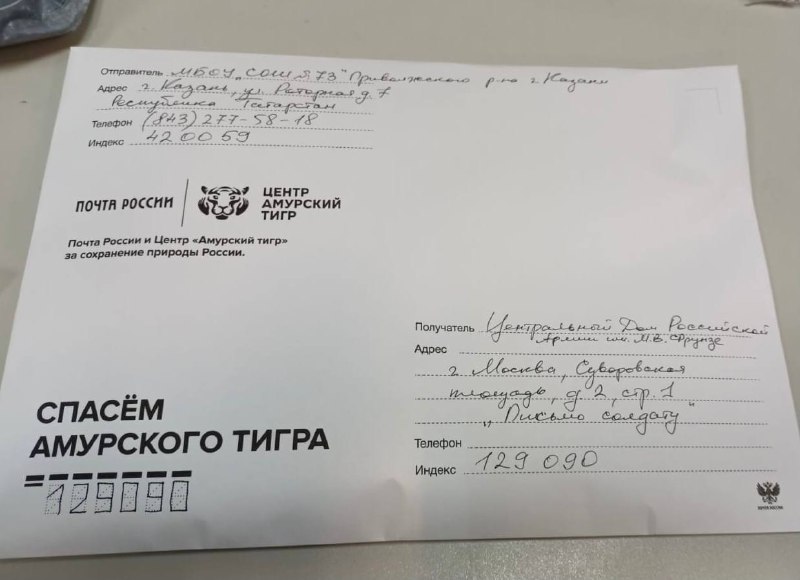 Отправитель МБОУ „СОШ №73" Приволжского р-на г. Казани
Адрес г. Казань, ул. Роторная д. 7
Республика Татарстан
Телефон (843) 277-58-18
Индекс 420059
ПОЧТА РОССИИ
ЦЕНТР
АМУРСКИЙ
ТИГР
Почта России и Центр «Амурский тигр»
за сохранение природы России.
Получатель Центральный Дом Российской
Армии им. М.В. Фрунзе
Адрес
г Москва, Суворовская
площадь, д. 2, стр. 1
„Письмо солдату"
Телефон
Индекс 129 090
СПАСЁМ
АМУРСКОГО ТИГРА
129090
ПОЧТА РОССИИ